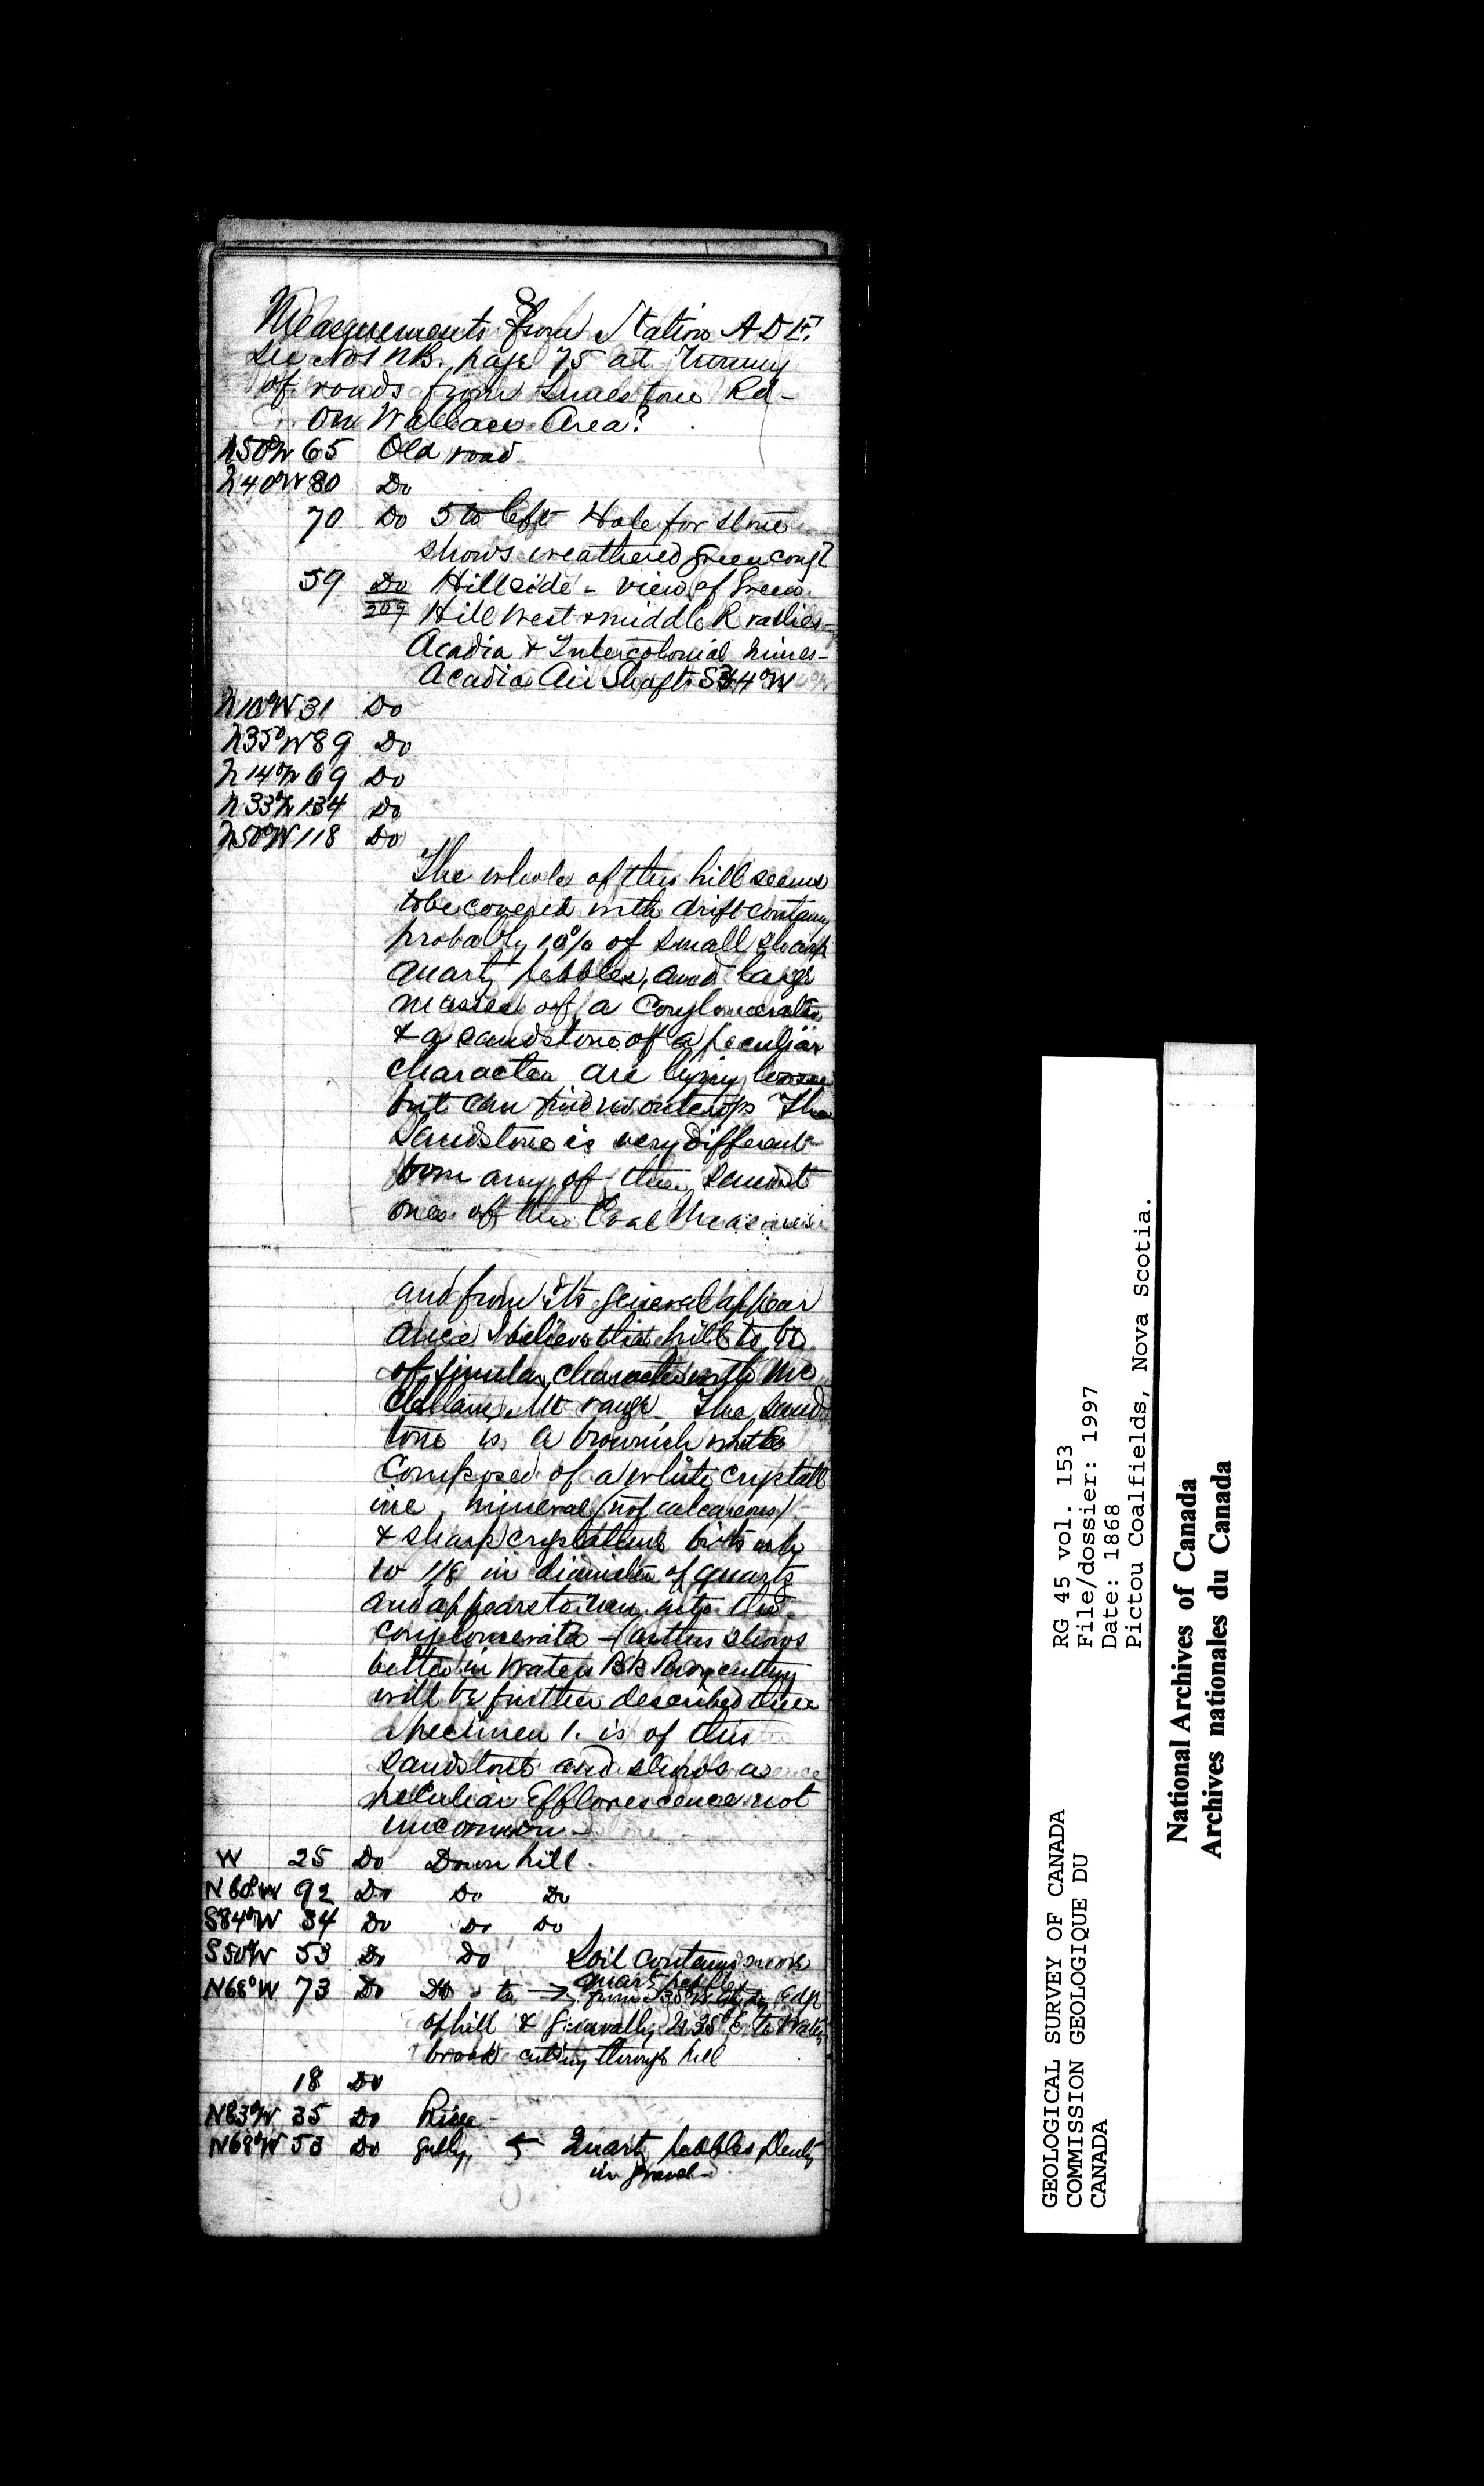 8
Measurements from Station A D 1st
See No 1 N.B. page 75 at Turning
of roads from Limestone Rd -
On Wallace Area?
N50°W 65 Old road
N40°W 80 Do
70 Do 5 to left Hole for stone
shows weathered green congl
59 Do Hillside - view of Green
209 Hill West & middle R vallies -
Acadia & Intercolonial mines -
Acadia Air Shaft S34°W
N10°W 31 Do
N35°W 89 Do
N14°W 69 Do
N33°W 134 Do
N50°W 118 Do
The whole of this hill seems
to be covered with drift containg
probably 10% of small sharp
quartz pebbles, and large
masses of a Conglomerate
& a sandstone of a peculiar
character are lying loose
but can find no outcrops The
Sandstone is very different
from any of the Sandst
ones of the Coal Measures
and from its general appear
ance I believe this hill to be
of similar character with Mc
Clellans Mt range. The Sands
tone is a brownish white
Composed of a white crystall
ine mineral (not calcareous)
& sharp crystalline bits up
to 1/8 in diameter of quartz
and appears to run into the
conglomerate - (as this shows
better in Waters Bk Rway cutting
will be further described there
Specimen 1. is of this
Sandstone and shows a
peculiar Efflorescence not
uncommon -
W 25 Do Down hill.
N60°W 92 Do Do Do
S84°W 34 Do Do Do
S50°W 53 Do Do Soil contains more
quartz pebbles
N68°W 73 Do Do to → from S35°W Edge
of hill & generally N35°E to Waters
brook cutting through hill
18 Do
N83°W 35 Do Rises
N68°W 53 Do gully, Quartz pebbles plenty
in gravel -
GEOLOGICAL SURVEY OF CANADA
COMMISSION GEOLOGIQUE DU
CANADA
RG 45 vol. 153
File/dossier: 1997
Date: 1868
Pictou Coalfields, Nova Scotia.
National Archives of Canada
Archives nationales du Canada